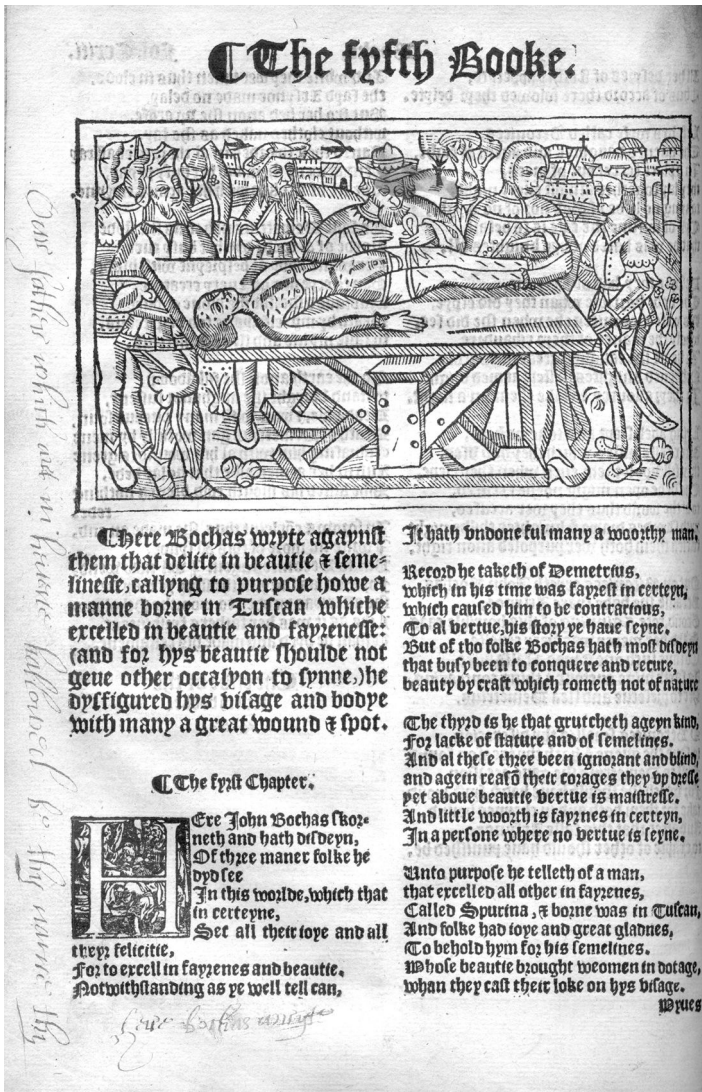 ¶ The fyfth Booke.
¶Here Bochas wryte agaynst
them that delite in beautie & seme-
linesse, callyng to purpose howe a
manne borne in Tuscan whiche
excelled in beautie and fayrenesse:
(and for hys beautie shoulde not
geue other occasyon to synne,) he
dysfigured hys visage and bodye
with many a great wound & spot.
¶The fyrst Chapter.
HEre John Bochas skor-
neth and hath disdeyn,
Of three maner folke he
dyd see
In this worlde, which that
in certeyne,
Set all their ioye and all
theyr felicitie,
For to excell in fayrenes and beautie.
Notwithstanding as ye well tell can,
It hath vndone ful many a woorthy man.
Record he taketh of Demetrius,
which in his time was fayrest in certeyn,
which caused him to be contrarious,
To al vertue, his story ye haue seyne.
But of tho folke Bochas hath most disdeyn
that busy been to conquere and recure,
beauty by craft which cometh not of nature
The thyrd is he that grutcheth ageyn kind,
For lacke of stature and of semelines.
And al these three been ignorant and blind,
and agein reasõ their corages they vp dresse
yet aboue beautie vertue is maistresse.
And little woorth is fayrnes in certeyn,
In a persone where no vertue is seyne.
Unto purpose he telleth of a man,
that excelled all other in fayrenes,
Called Spurina, & borne was in Tuscan,
And folke had ioye and great gladnes,
To behold hym for his semelines.
Whose beautie brought weomen in dotage,
whan they cast their loke on hys visage.
Wyues
Our father which art in heaune hallowed be thy name thy